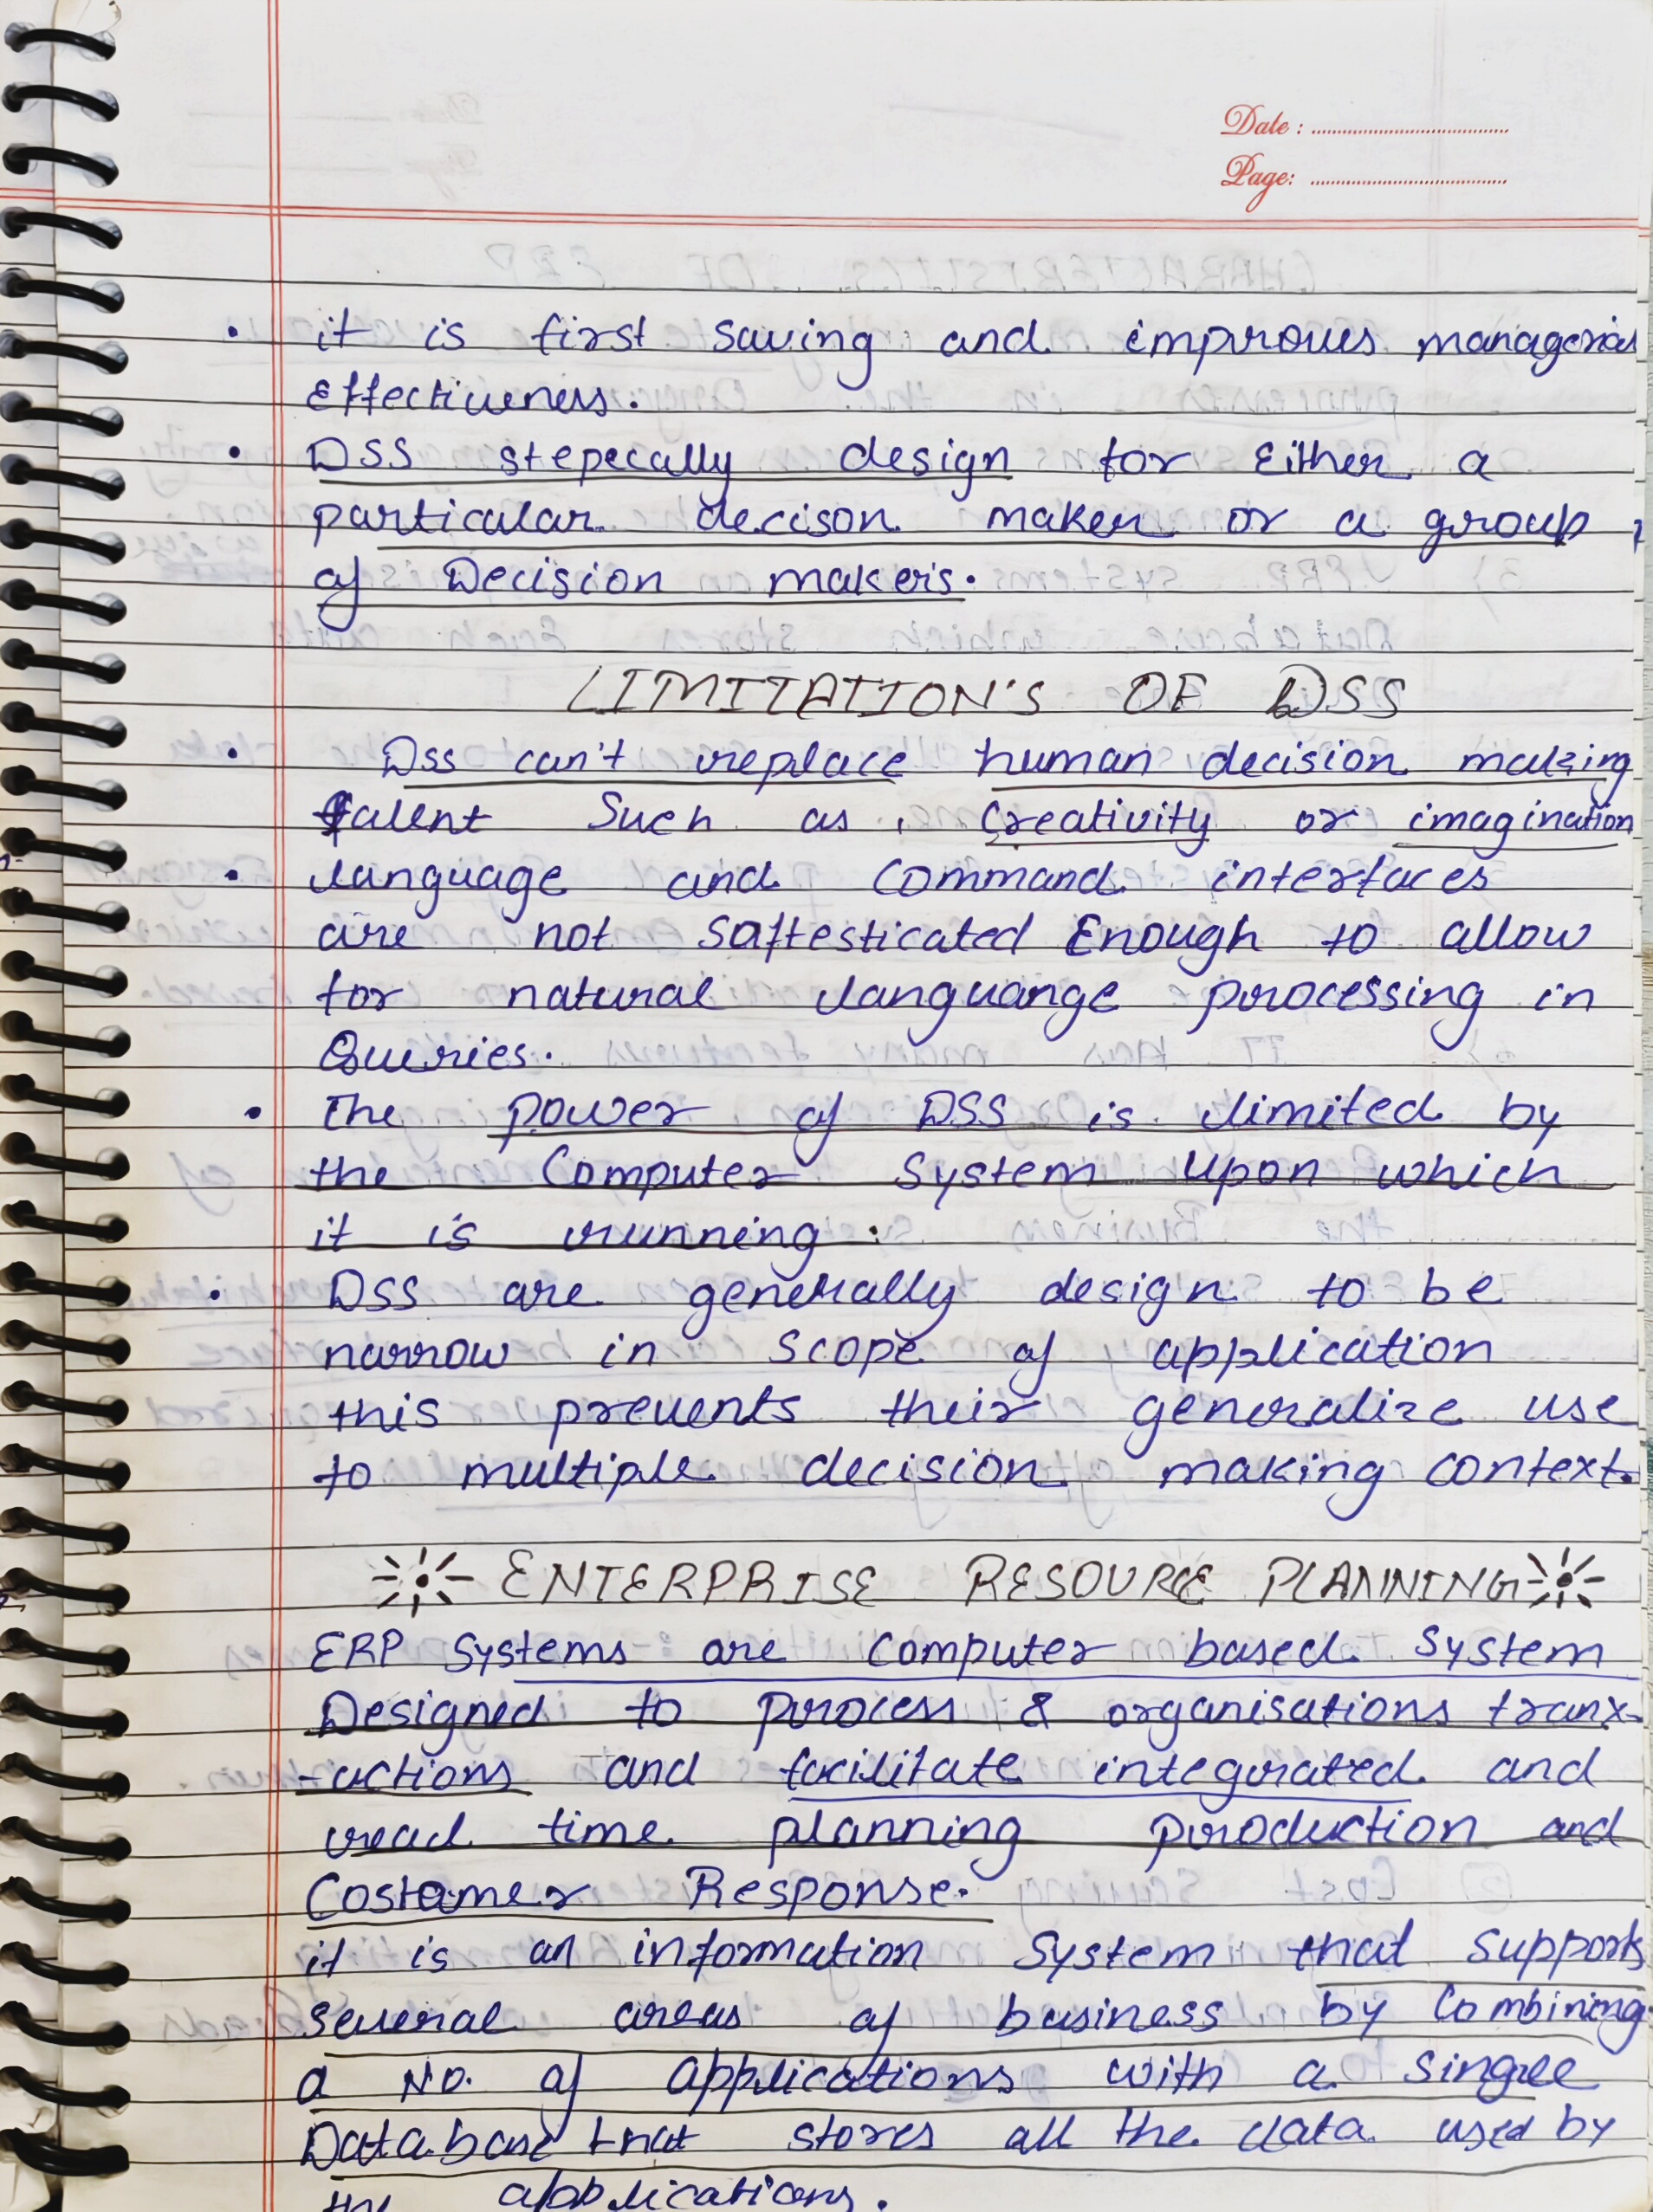 Date :
Page:
• it is first saving and improves managerial
Effectiveness.
• DSS stepecally design for Either a
particular decison maker or a group
of Decision makers.
LIMITATION'S OF DSS
• Dss can't replace human decision making
talent Such as, Creativity or imagination
• language and Command interfaces
are not Saftesticated Enough to allow
for natural languange processing in
Queries.
• The power of DSS is limited by
the Computer System Upon which
it is running.
• DSS are generally design to be
narrow in scope of application
this prevents their generalize use
to multiple decision making context.
ENTERPRISE RESOURCE PLANNING
ERP Systems are Computer based System
Designed to process & organisations tranx-
-actions and facilitate integrated and
real time planning production and
Costomer Response.
it is an information System that supports
several areas of business by Combining
a No. of applications with a single
Database that stores all the data used by
the applications.